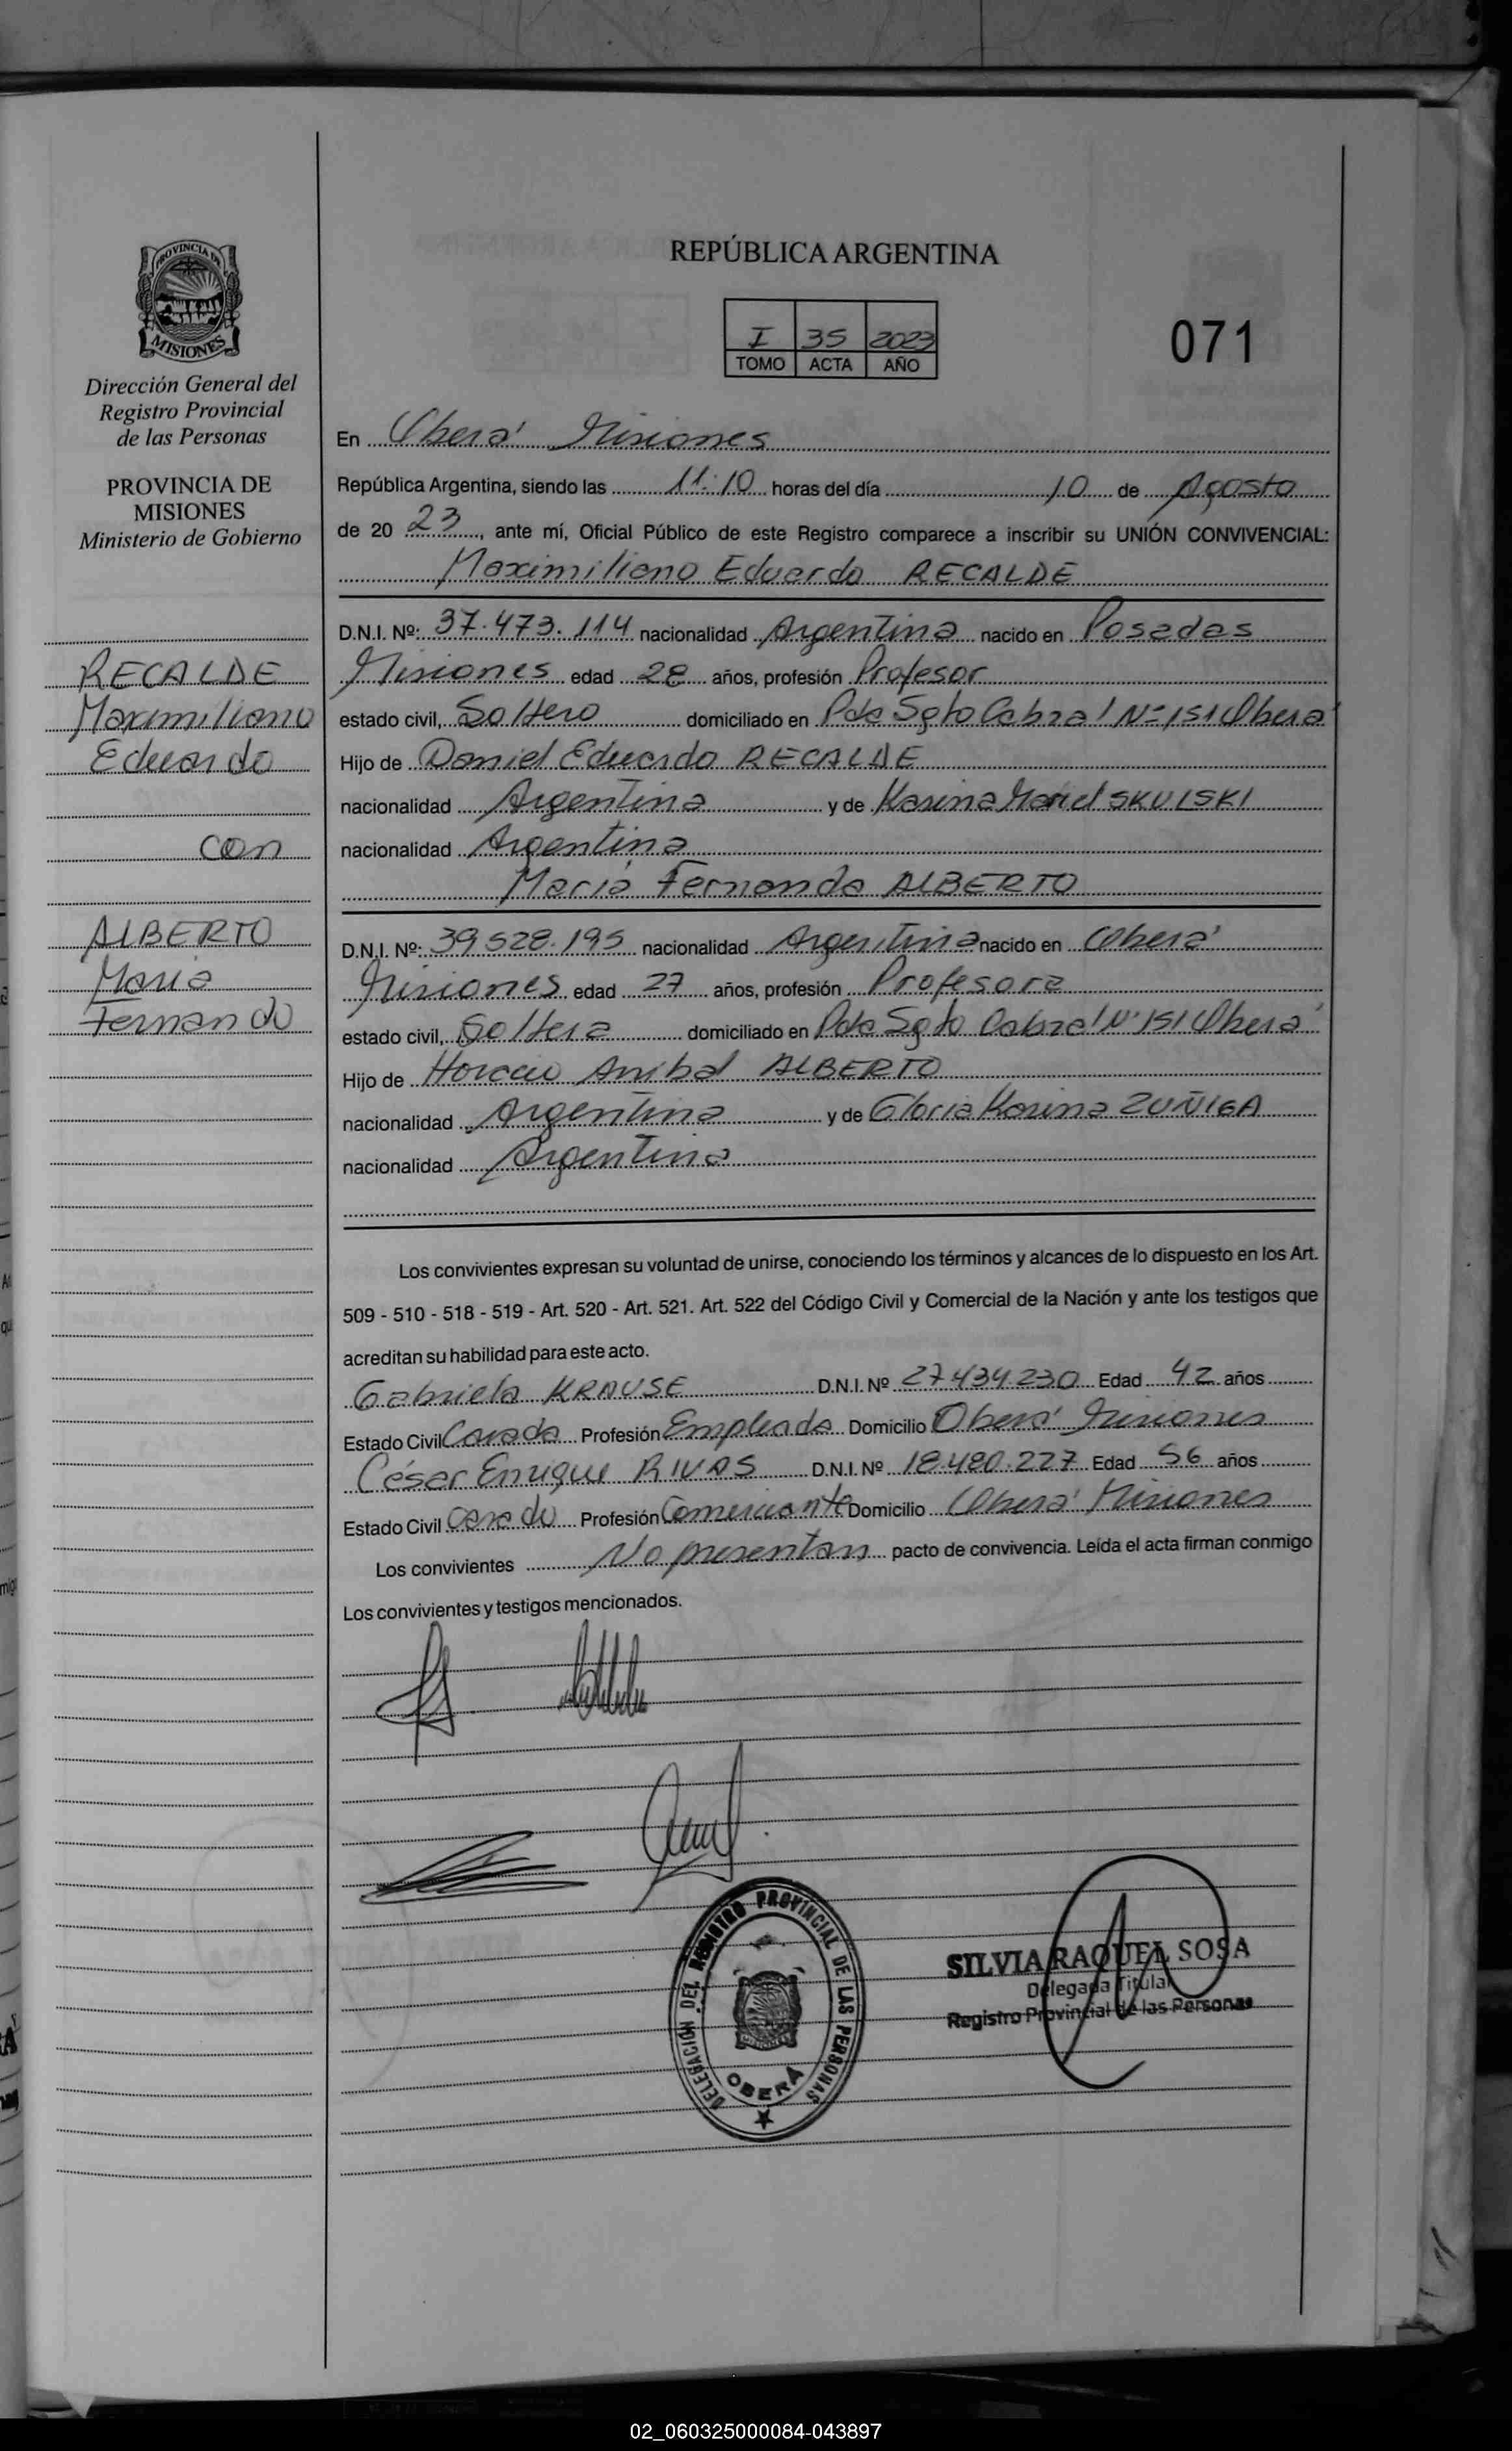 PROVINCIA DE
MISIONES
Dirección General del
Registro Provincial
de las Personas
PROVINCIA DE
MISIONES
Ministerio de Gobierno
RECALDE
Maximiliano
Eduardo
con
ALBERTO
Maria
Fernanda
REPÚBLICA ARGENTINA
I 35 2023
TOMO ACTA AÑO
071
En Oberá Misiones
República Argentina, siendo las 11:10 horas del día 10 de Agosto
de 20 23, ante mí, Oficial Público de este Registro comparece a inscribir su UNIÓN CONVIVENCIAL:
Maximiliano Eduardo RECALDE
D.N.I. Nº: 37.473.114 nacionalidad Argentina nacido en Posadas
Misiones edad 28 años, profesión Profesor
estado civil, Soltero domiciliado en Pda Sgto Cabral Nº 151 Oberá
Hijo de Daniel Eduardo RECALDE
nacionalidad Argentina y de Karina Mariel SKULSKI
nacionalidad Argentina
María Fernanda ALBERTO
D.N.I. Nº: 39.528.195 nacionalidad Argentina nacido en Oberá
Misiones edad 27 años, profesión Profesora
estado civil, Soltera domiciliado en Pda Sgto Cabral Nº 151 Oberá
Hijo de Horacio Anibal ALBERTO
nacionalidad Argentina y de Gloria Karina ZUÑIGA
nacionalidad Argentina
Los convivientes expresan su voluntad de unirse, conociendo los términos y alcances de lo dispuesto en los Art.
509 - 510 - 518 - 519 - Art. 520 - Art. 521. Art. 522 del Código Civil y Comercial de la Nación y ante los testigos que
acreditan su habilidad para este acto.
Gabriela KRAUSE D.N.I. Nº 27.434.230 Edad 42 años
Estado Civil Casada Profesión Empleada Domicilio Oberá Misiones
César Enrique RIVAS D.N.I. Nº 18.480.227 Edad 56 años
Estado Civil Casado Profesión Comerciante Domicilio Oberá Misiones
Los convivientes No presentan pacto de convivencia. Leída el acta firman conmigo
Los convivientes y testigos mencionados.
DELEGACION DEL REGISTRO PROVINCIAL DE LAS PERSONAS
OBERÁ
SILVIA RAQUEL SOSA
Delegada Titular
Registro Provincial de las Personas
02_060325000084-043897